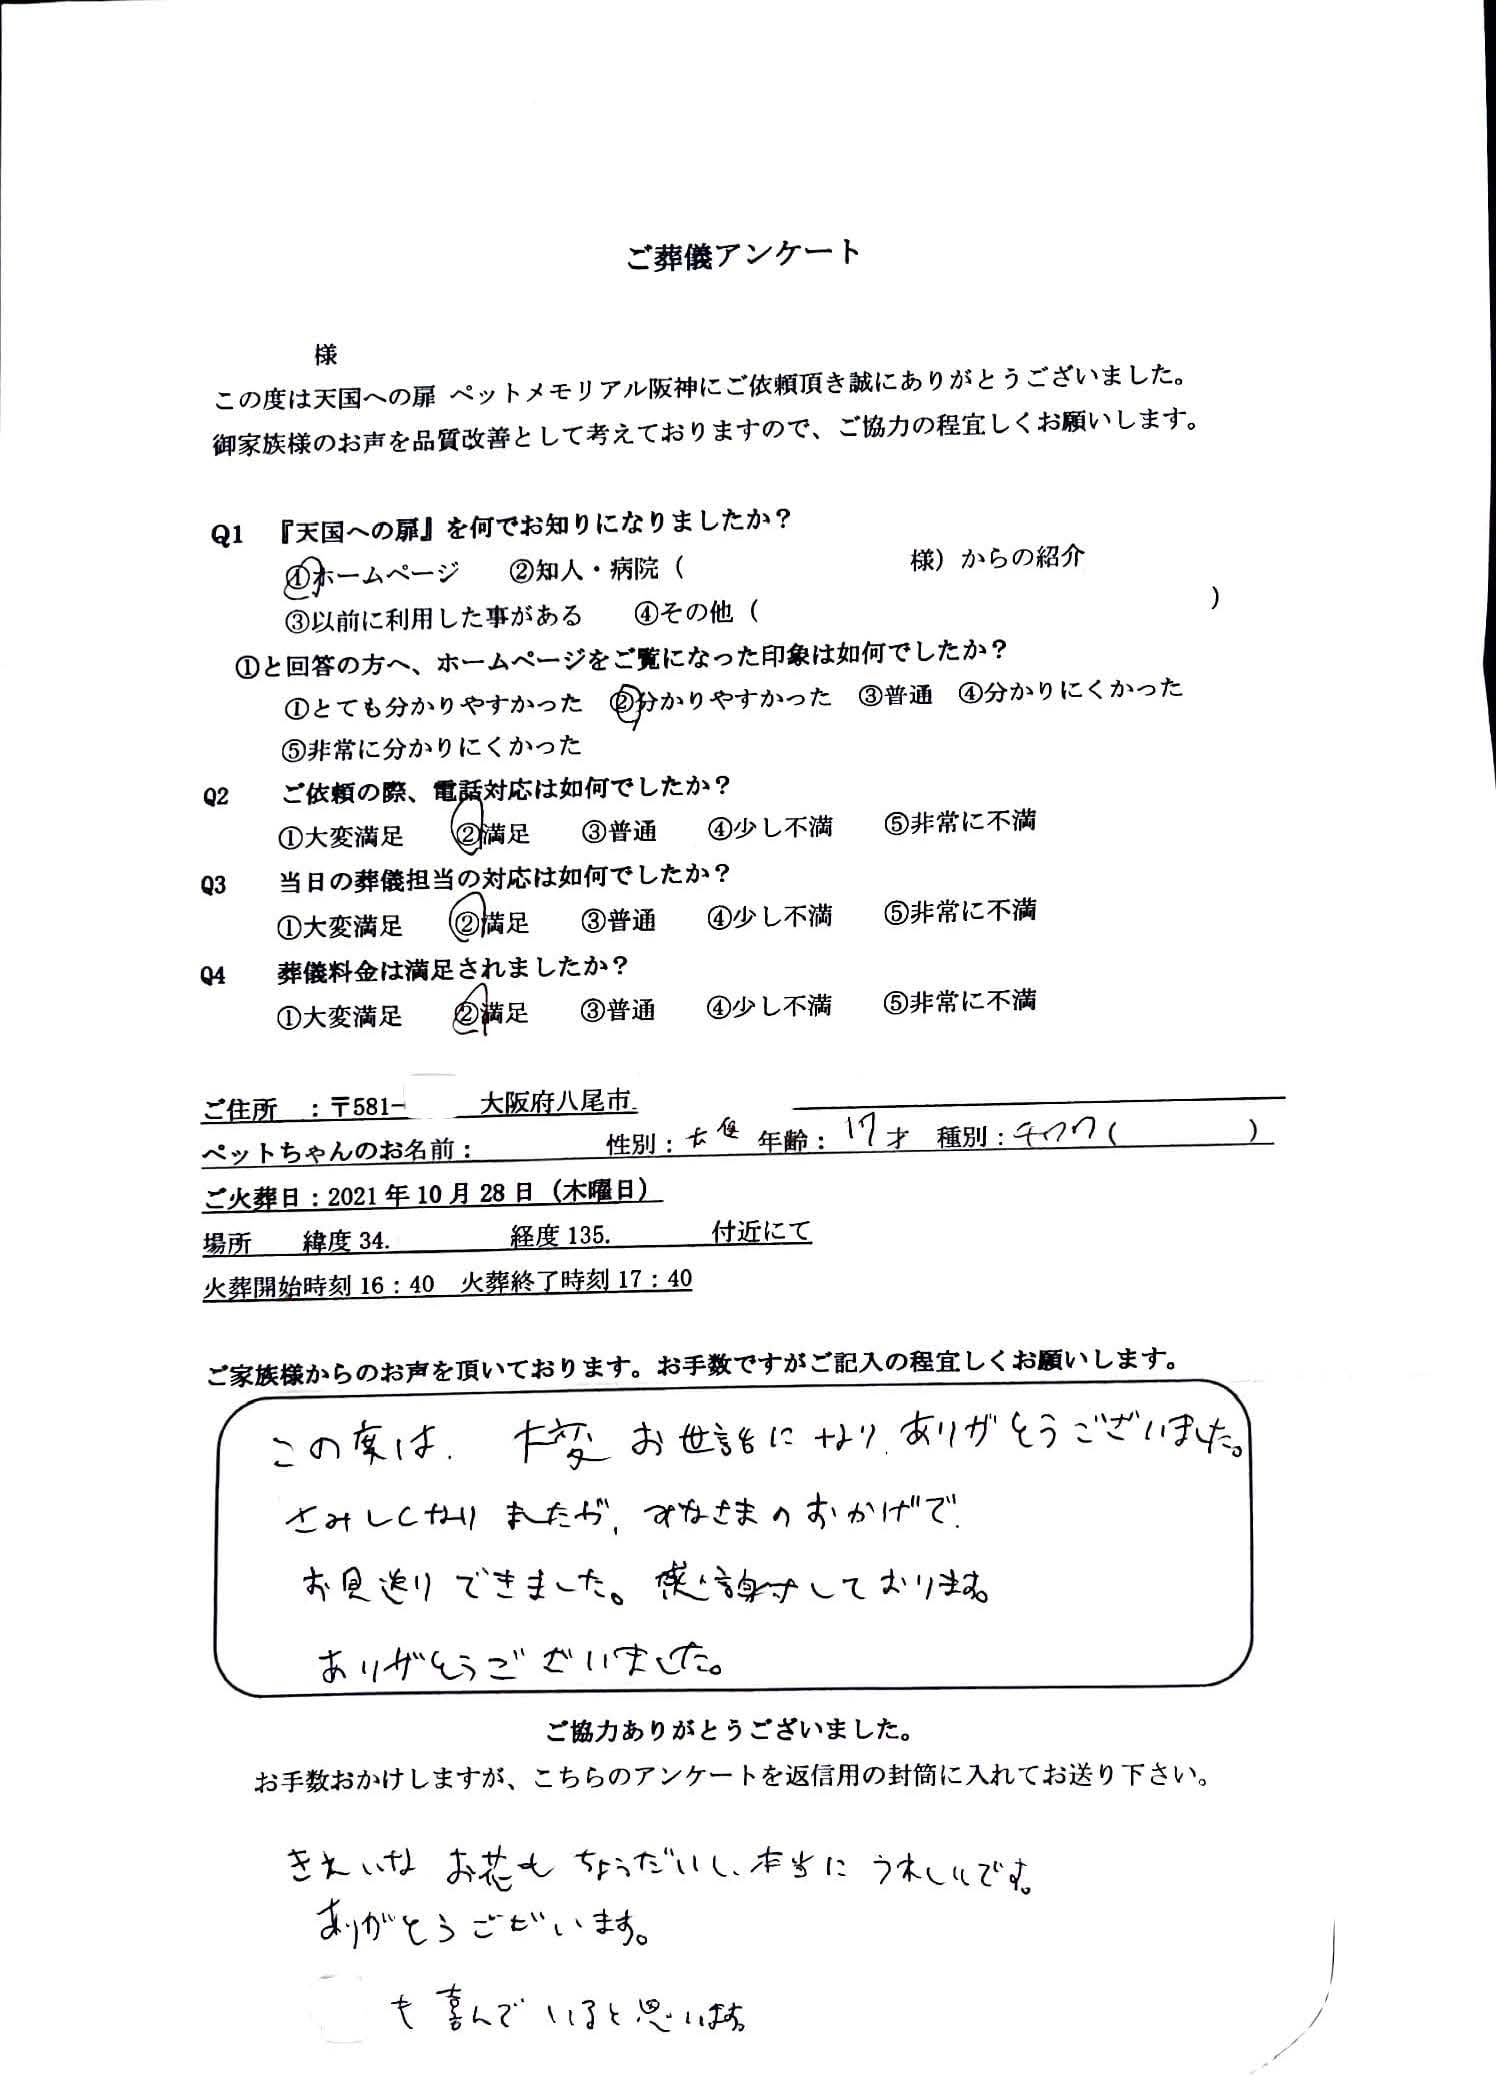 ご葬儀アンケート
様
この度は天国への扉 ペットメモリアル阪神にご依頼頂き誠にありがとうございました。
御家族様のお声を品質改善として考えておりますので、ご協力の程宜しくお願いします。
Q1 『天国への扉』を何でお知りになりましたか?
①ホームページ ②知人・病院( 様)からの紹介
③以前に利用した事がある ④その他( )
①と回答の方へ、ホームページをご覧になった印象は如何でしたか?
①とても分かりやすかった ②分かりやすかった ③普通 ④分かりにくかった
⑤非常に分かりにくかった
Q2 ご依頼の際、電話対応は如何でしたか?
①大変満足 ②満足 ③普通 ④少し不満 ⑤非常に不満
Q3 当日の葬儀担当の対応は如何でしたか?
①大変満足 ②満足 ③普通 ④少し不満 ⑤非常に不満
Q4 葬儀料金は満足されましたか?
①大変満足 ②満足 ③普通 ④少し不満 ⑤非常に不満
ご住所 :〒581- 大阪府八尾市
ペットちゃんのお名前: 性別: 年齢: 17才 種別:チワワ( )
ご火葬日:2021年10月28日(木曜日)
場所 緯度34. 経度135. 付近にて
火葬開始時刻16:40 火葬終了時刻17:40
ご家族様からのお声を頂いております。お手数ですがご記入の程宜しくお願いします。
この度は、大変お世話になり、ありがとうございました。
さみしくなりましたが、みなさまのおかげで、
お見送りできました。感謝しております。
ありがとうございました。
ご協力ありがとうございました。
お手数おかけしますが、こちらのアンケートを返信用の封筒に入れてお送り下さい。
きれいなお花もちょうだいし、本当にうれしいです。
ありがとうございます。
も喜んでいると思います。